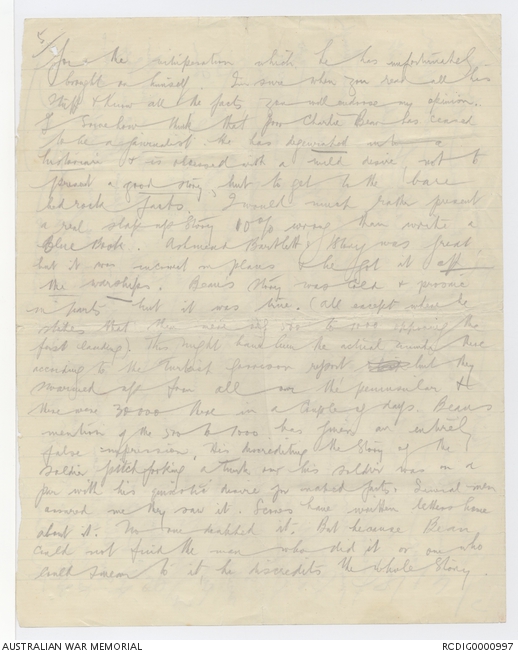 5/
for a the vituperation which he has unfortunately
brought on himself. Im sure when you read all his
stuff & know all the facts you will endorse my opinion.
I somehow think that poor Charlie Bean has ceased
to be a journalist. He has degenerated into a
historian & is obsessed with a wild desire not to
present a good story, but to get to the bare
bedrock facts. I would much rather present
a real slap up story 10% wrong than write a
Blue Book. Ashmead Bartlett's Story was great
but it was incorrect in places & he got it off
the warships. Bean's Story was cold & prosaic
in parts but it was true. (all except where he
states that there were only 500 to 1000 opposing the
first landing). This might have been the actual number there
according to the Turkish garrison report but they
swarmed up from all over the peninsular &
there were 30000 there in a couple of days. Bean's
mention of the 500 to 1000 has given an entirely
false impression, his discrediting the Story of the
soldier pitchforking a Turk over his shoulder was on a
par with his quixotic desire for naked facts. Several men
assured me they saw it. Scores have written letters home
about it. No one doubted it. But because Bean
could not find the man who did it or one who
could swear to it he discredits the whole Story.
AUSTRALIAN WAR MEMORIAL
RCDIG0000997